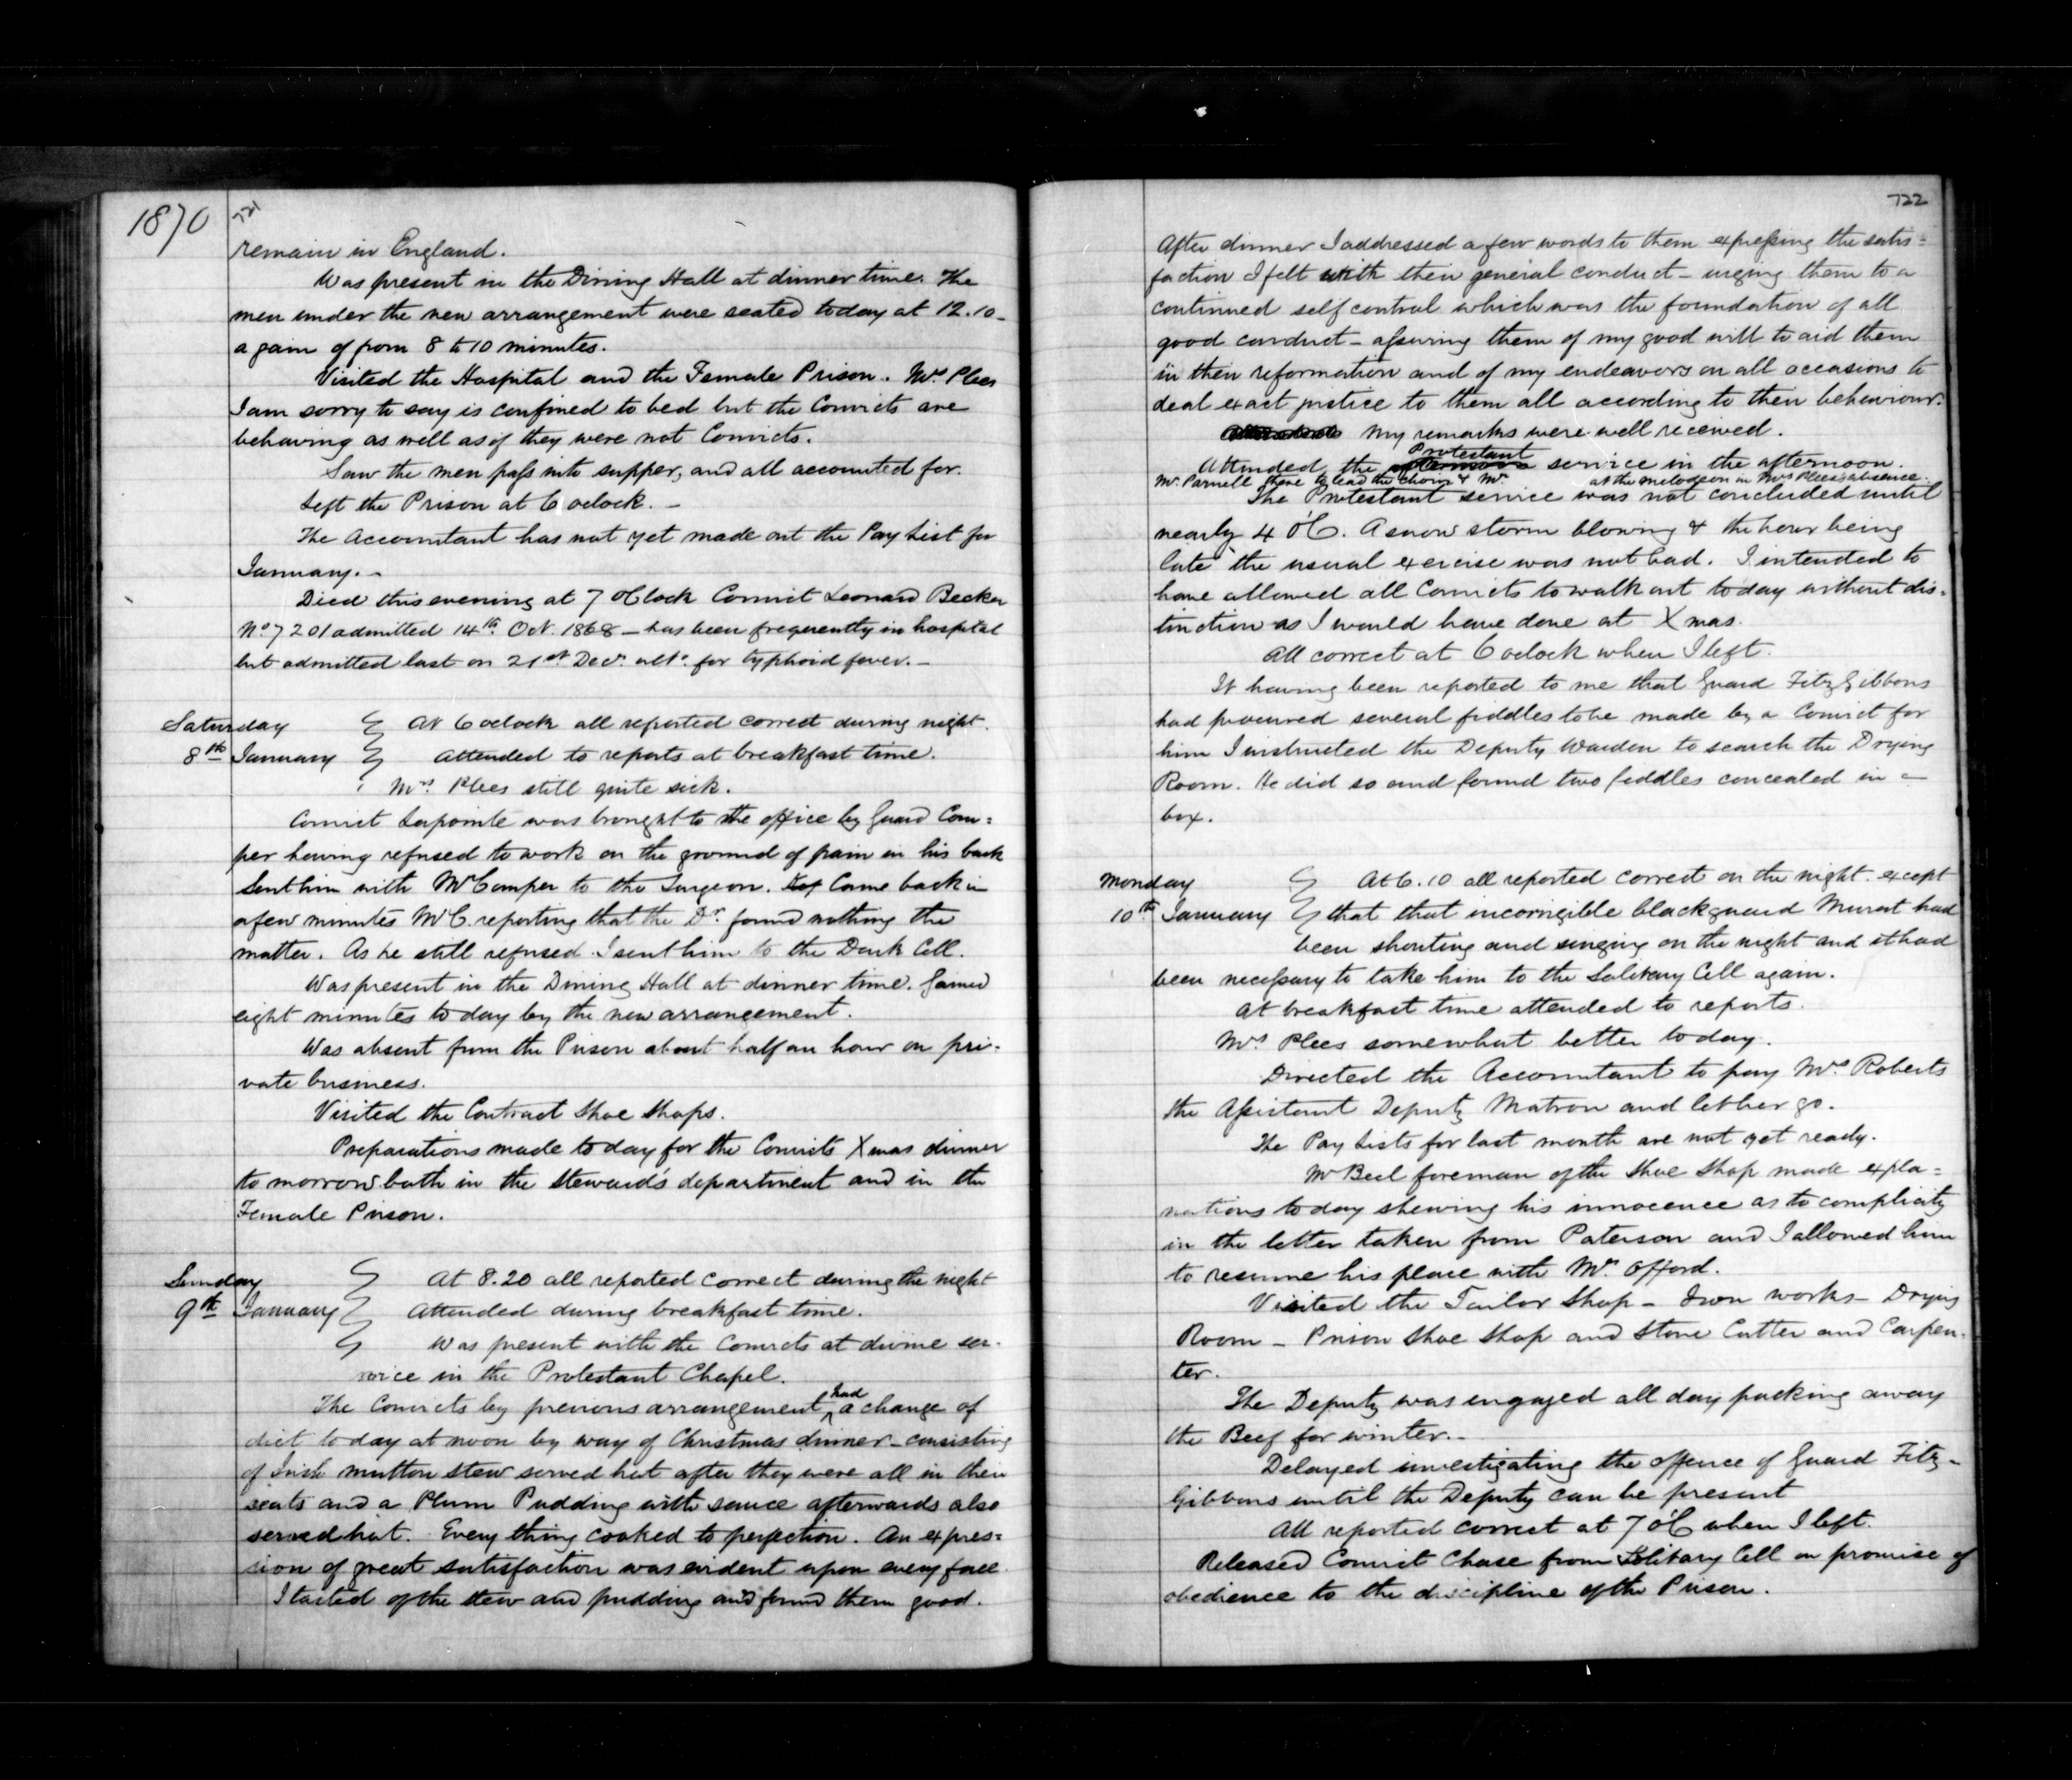 1870
721
remain in England.
Was present in the Dining Hall at dinner time. The
men under the new arrangement were seated today at 12.10 -
a gain of from 8 to 10 minutes.
Visited the Hospital and the Female Prison. Mrs. Plees
I am sorry to say is confined to bed but the Convicts are
behaving as well as if they were not Convicts.
Saw the men pass into supper, and all accounted for.
Left the Prison at 6 oclock. -
The Accountant has not yet made out the Pay List for
January. -
Died this evening at 7 O'Clock Convict Leonard Becker
No 7201 admitted 14th. Oct. 1868 - has been frequently in hospital
but admitted last on 21st Decr. ulto. for typhoid fever. -
Saturday
8th January
At 6 oclock all reported correct during night.
Attended to reports at breakfast time.
Mrs. Plees still quite sick.
Convict Lapointe was brought to the office by Guard Com=
per having refused to work on the ground of pain in his back
Sent him with Mr Comper to the Surgeon. Came back in
a few minutes Mr C. reporting that the Dr. found nothing the
matter. As he still refused I sent him to the Dark Cell.
Was present in the Dining Hall at dinner time. Gained
eight minutes today by the new arrangement.
Was absent from the Prison about half an hour on pri-
vate business.
Visited the Contract Shoe Shops.
Preparations made today for the Convicts Xmas dinner
tomorrow both in the Steward's department and in the
Female Prison.
Sunday
9th January
At 8.20 all reported correct during the night
Attended during breakfast time.
Was present with the Convicts at divine ser-
vice in the Protestant Chapel.
The Convicts by previous arrangement had a change of
diet today at noon by way of Christmas dinner - consisting
of Irish mutton stew served hot after they were all in their
seats and a Plum Pudding with sauce afterwards also
served hot. Every thing cooked to perfection. An expres=
sion of great satisfaction was evident upon every face.
I tasted of the stew and pudding and found them good.
722
After dinner I addressed a few words to them expressing the satis=
faction I felt with their general conduct - urging them to a
continued self control which was the foundation of all
good conduct - assuring them of my good will to aid them
in their reformation and of my endeavors on all occasions to
deal exact justice to them all according to their behaviour.
My remarks were well received.
Attended the afternoon Protestant service in the afternoon.
Mr. Parnell there to lead the choir & Mr. at the melodeon in Mrs Plees' absence.
The Protestant service was not concluded until
nearly 4 o'C. A snow storm blowing & the hour being
late the usual exercise was not had. I intended to
have allowed all Convicts to walk out today without dis=
tinction as I would have done at Xmas.
All correct at 6 oclock when I left.
It having been reported to me that Guard FitzGibbons
had procured several fiddles to be made by a Convict for
him I instructed the Deputy Warden to search the Drying
Room. He did so and found two fiddles concealed in a
box.
Monday
10th January
At 6.10 all reported correct on the night. except
that that incorrigible blackguard Murat had
been shouting and singing on the night and it had
been necessary to take him to the Solitary Cell again.
At breakfast time attended to reports.
Mrs Plees somewhat better today.
Directed the Accountant to pay Mrs. Roberts
the Assistant Deputy Matron and let her go.
The Pay Lists for last month are not yet ready.
Mr Beel foreman of the Shoe Shop made expla=
nations today shewing his innocence as to complicity
in the letter taken from Paterson and I allowed him
to resume his place with Mr. Offord.
Visited the Tailor Shop - Iron works - Drying
Room - Prison Shoe Shop and Stone Cutter and Carpen-
ter.
The Deputy was engaged all day packing away
the Beef for winter. -
Delayed investigating the offence of Guard Fitz-
Gibbons until the Deputy can be present
All reported correct at 7 o'C when I left.
Released Convict Chase from Solitary Cell on promise of
obedience to the discipline of the Prison.